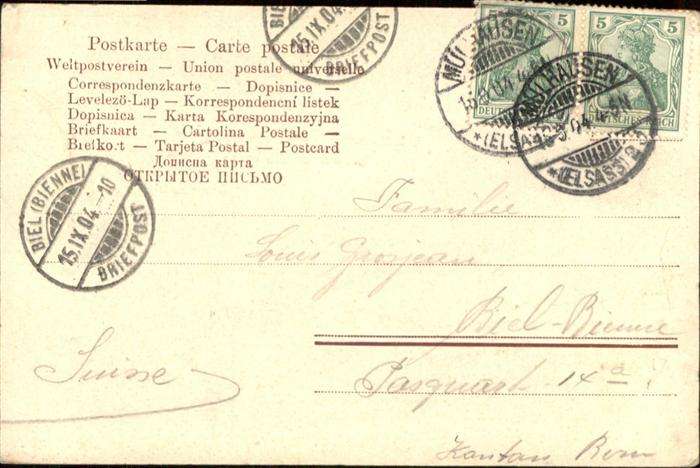 Postkarte — Carte postale
Weltpostverein — Union postale universelle
Correspondenzkarte — Dopisnice —
Levelező-Lap — Korrespondencni listek
Dopisnica — Karta Korespondenzyjna
Briefkaart — Cartolina Postale —
Brefkort — Tarjeta Postal — Postcard
Дописна карта
ОТКРЫТОЕ ПИСЬМО
15.IX.04
BRIEFPOST
5 5
DEUTSCHES REICH
MÜLHAUSEN
*(ELSASS)
MÜLHAUSEN
*(ELSASS)
BIEL (BIENNE)
15.IX.04.-10
BRIEFPOST
Familie
Louis Grosjean
Biel-Bienne
Suisse
Pasquart 14a
Kanton Bern